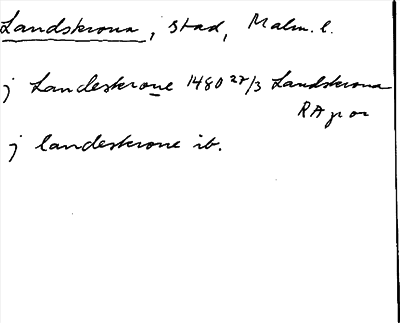 Landskrona, stad, Malm. l.
j Landeskrone 1480 27/3 Landskrona
RA p or
j landeskrone ib.